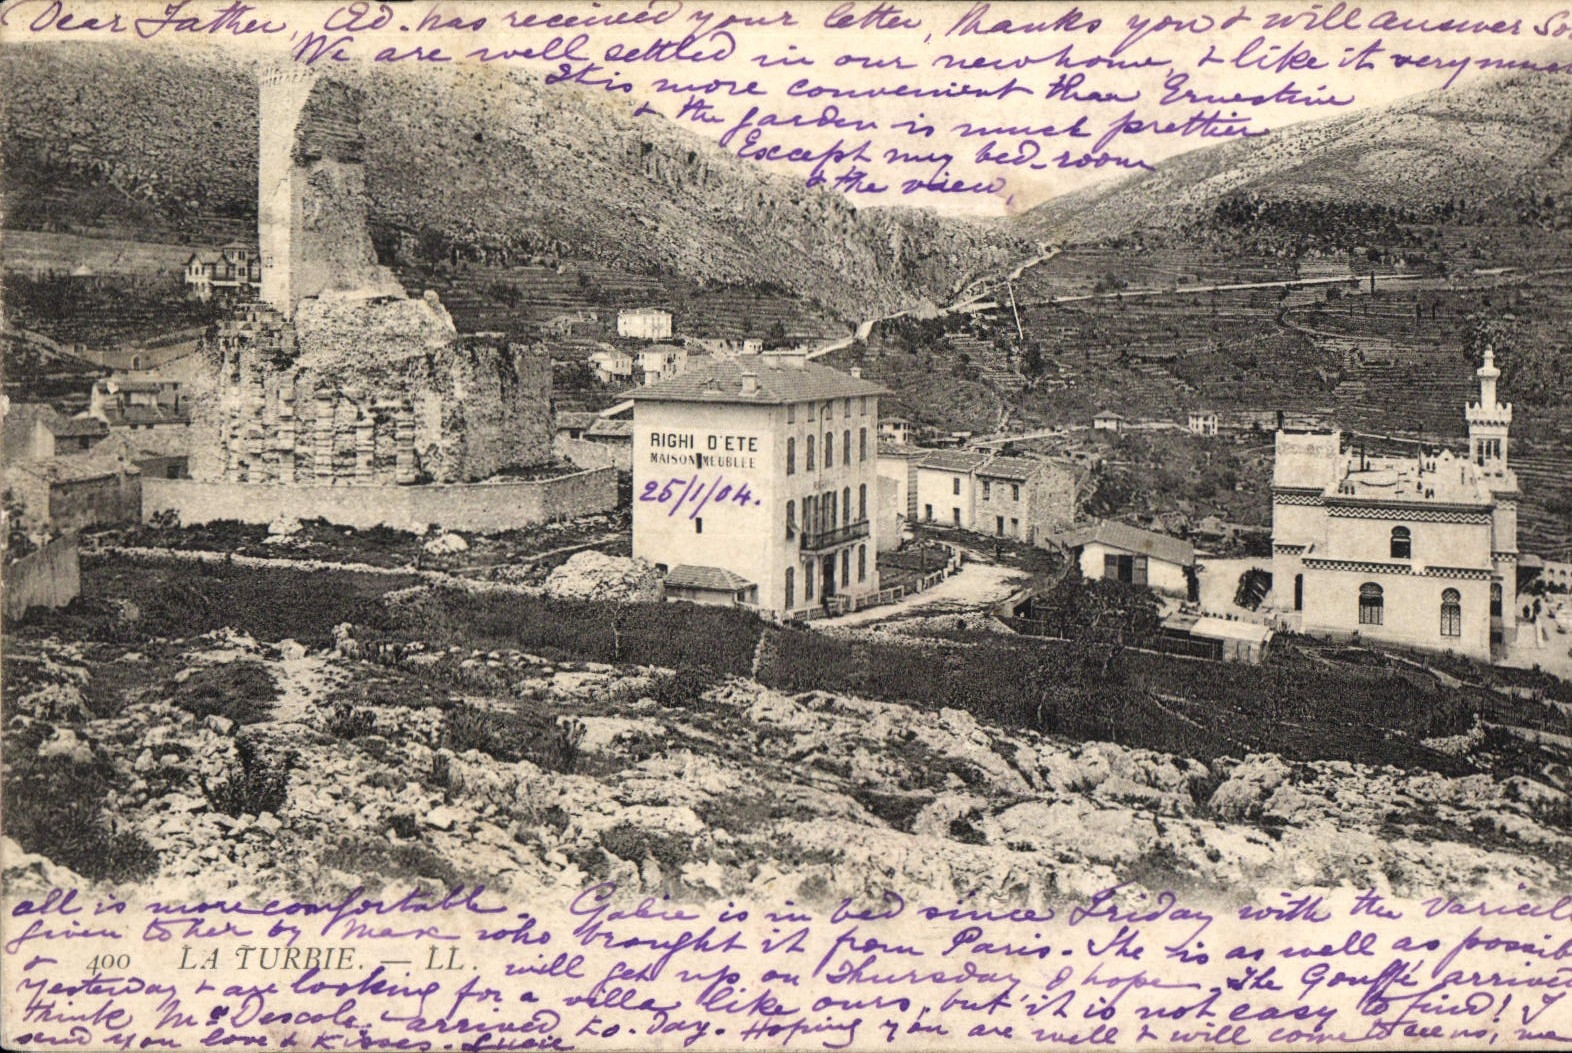 Dear Father, Ed. has received your letter, thanks you & will answer So
We are well settled in our new home, & like it very much
It is more convenient than Ernestine
& the garden is much prettier
Except my bed-room
& the view,
RIGHI D'ETE
MAISON MEUBLEE
25/1/04.
all is more comfortable. Gabie is in bed since Friday with the Varicell
given to her by Max who brought it from Paris. She is as well as possib
& will get up on Thursday I hope. The Gouffé arrived
400 LA TURBIE. — LL.
yesterday & are looking for a villa like ours, but it is not easy to find! I
think Mrs Descole arrived to-day. Hoping you are well & will come to see us, we
send you love & Kisses. Lucie